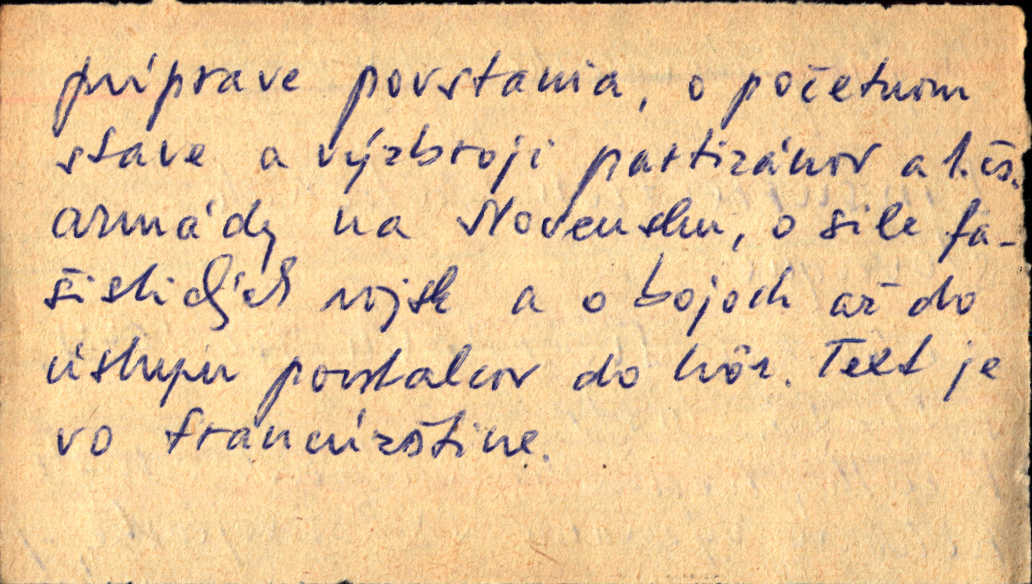 príprave povstania, o početnom
stave a výzbroji partizánov a 1. čs.
armády na Slovensku, o sile fa-
šistických vojsk a o bojoch až do
ústupu povstalcov do hôr. Text je
vo francúzštine.